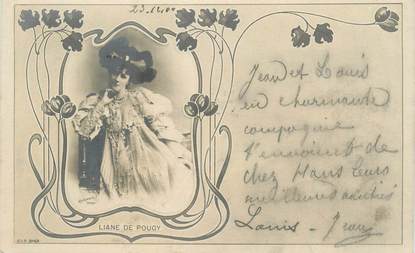 23.12.00
Jean et Louis
en charmante
compagnie
t'envoient de
chez Hans leurs
meilleures amitiés
Louis - Jean
LIANE DE POUGY